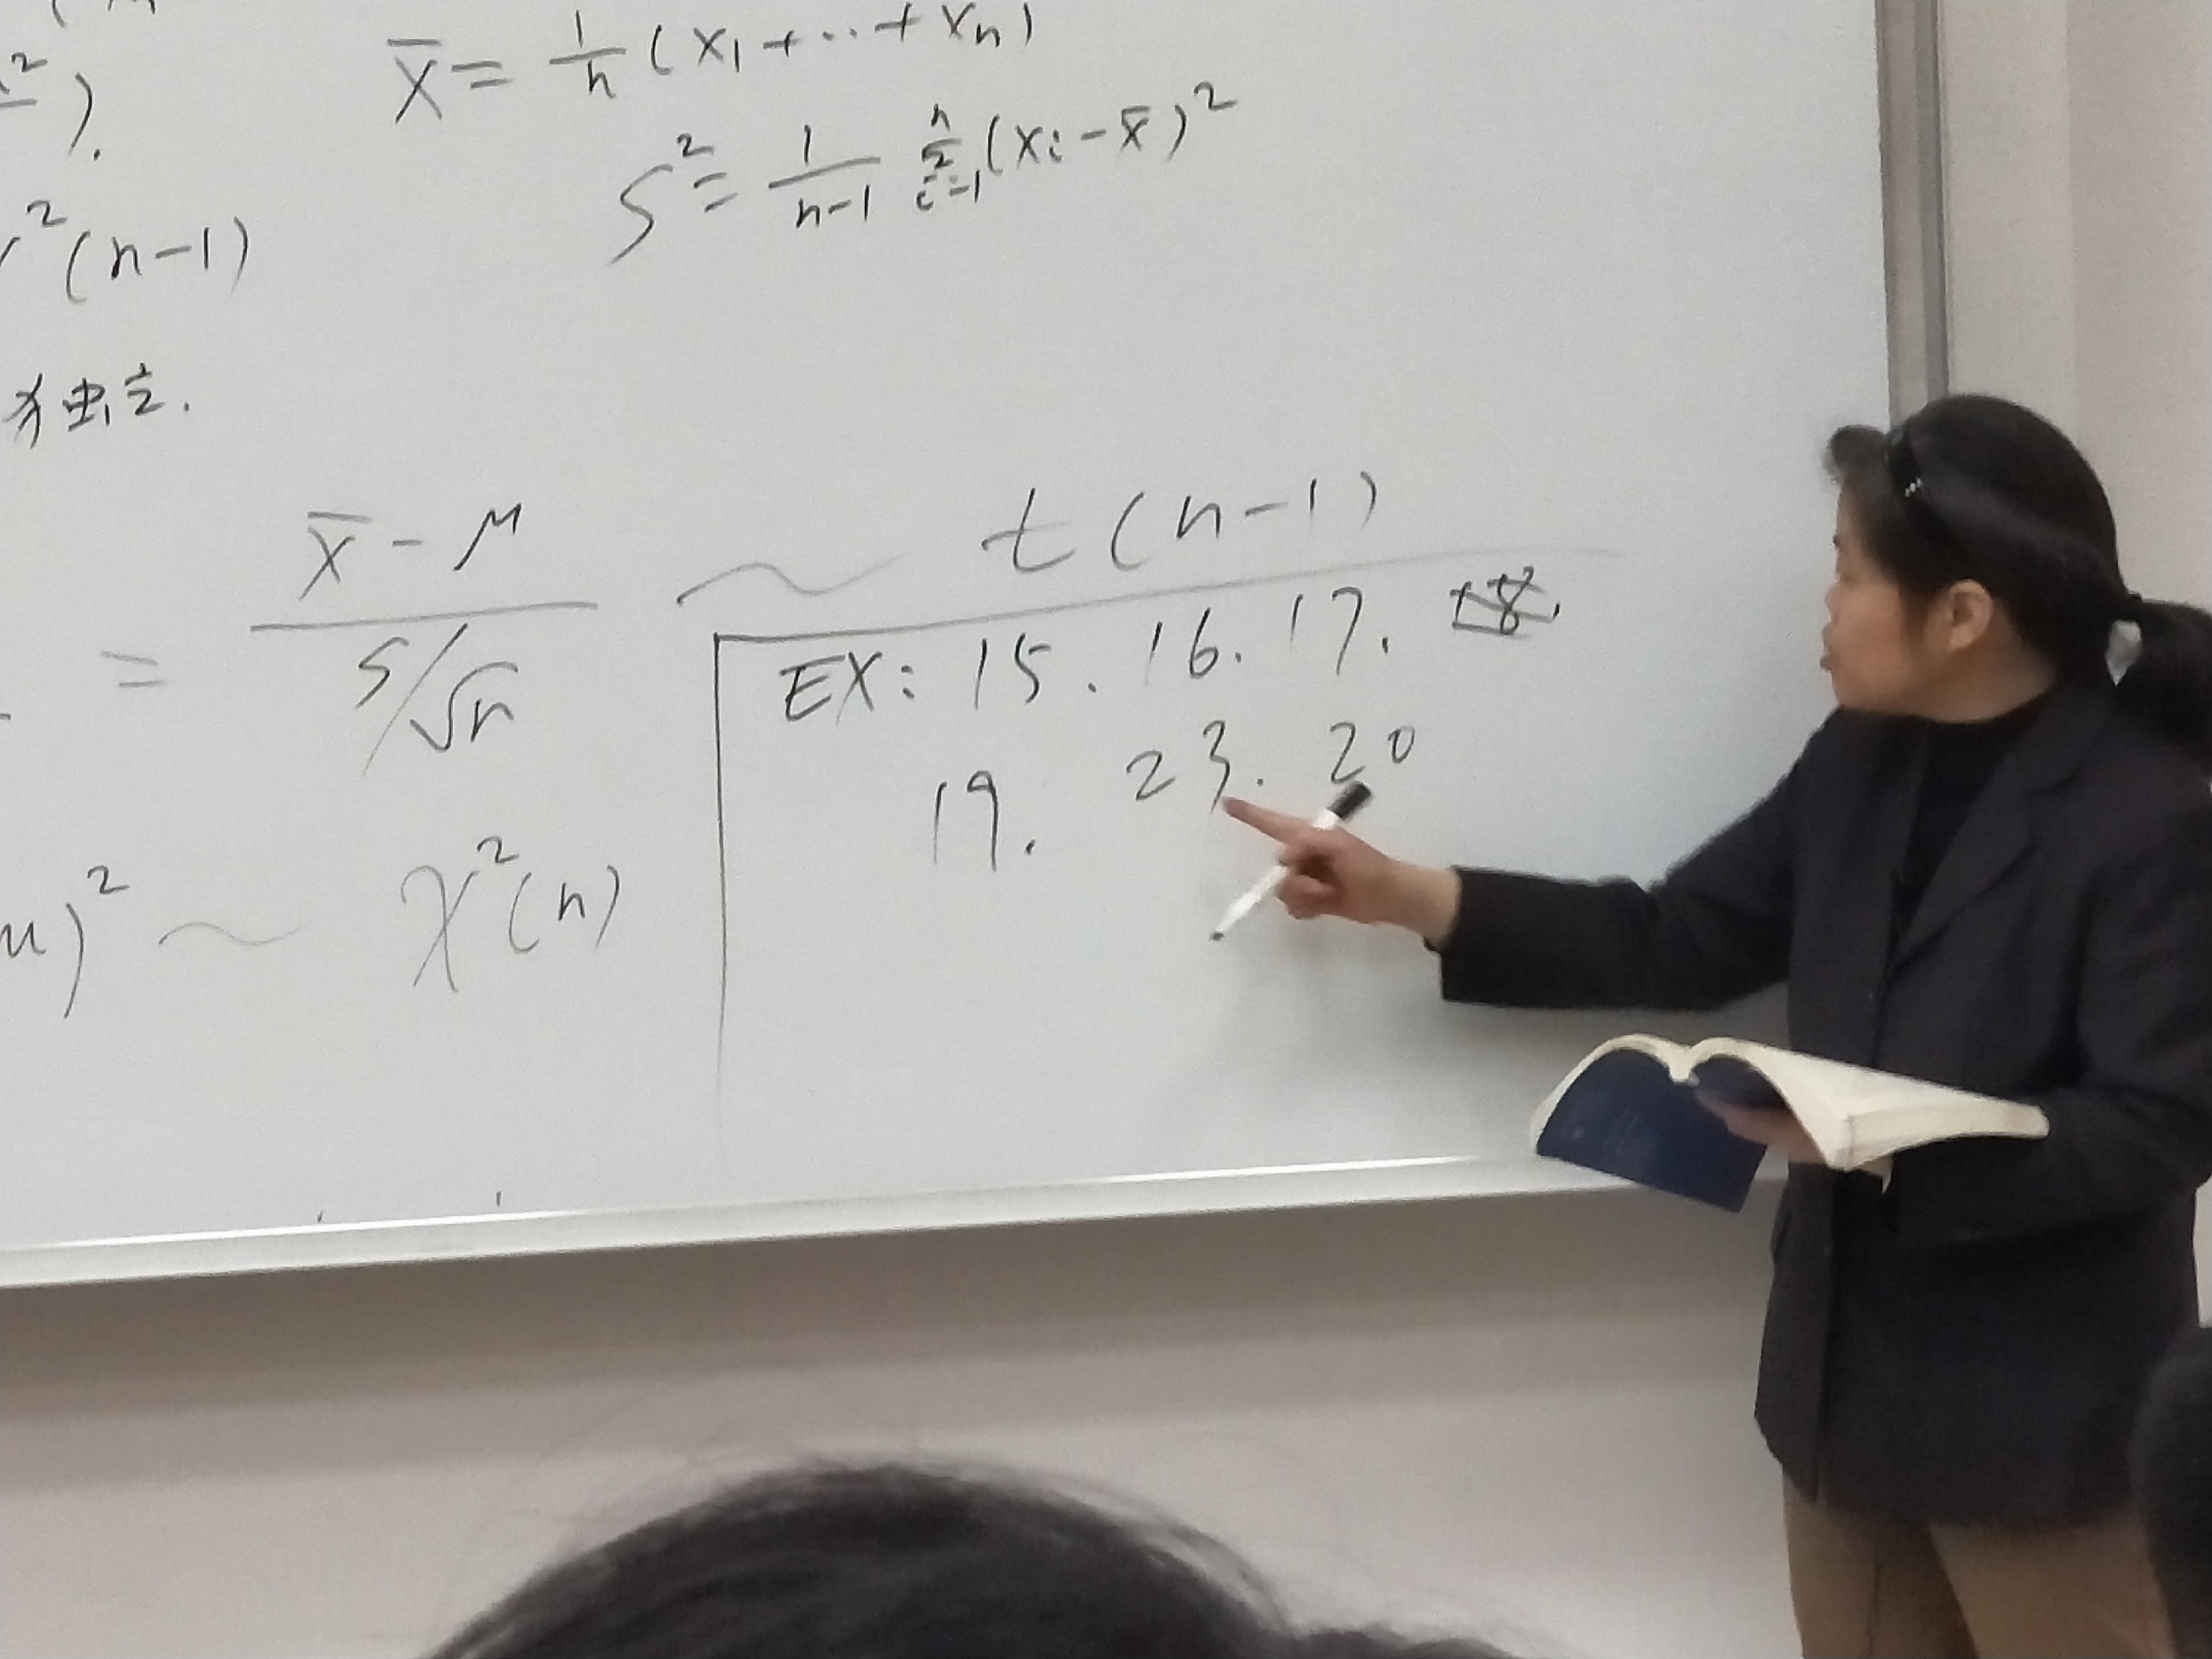 x̄ = 1/n (x₁ + ··· + xₙ)
²).
S² = 1/(n-1) Σᵢ₌₁ⁿ (xᵢ - x̄)²
²(n-1)
独立.
= (x̄ - μ)/(S/√n) ~ t(n-1)
EX: 15. 16. 17.
19. 23. 20
)² ~ χ²(n)